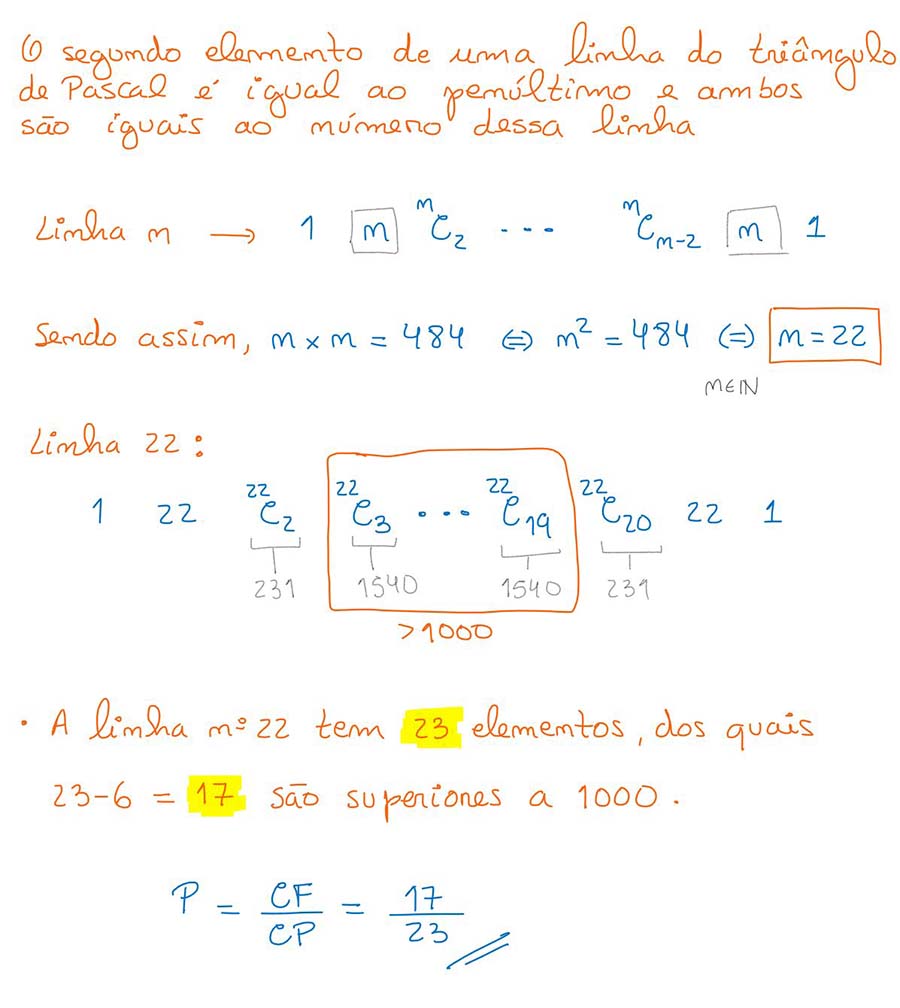 O segundo elemento de uma linha do triângulo
de Pascal é igual ao penúltimo e ambos
são iguais ao número dessa linha
Linha n → 1 n ⁿC₂ ... ⁿCₙ₋₂ n 1
Sendo assim, n × n = 484 ⇔ n² = 484 ⇔ n = 22
n∈ℕ
Linha 22 :
1 22 ²²C₂ ²²C₃ ... ²²C₁₉ ²²C₂₀ 22 1
231 1540 1540 231
>1000
· A linha nº 22 tem 23 elementos, dos quais
23-6 = 17 são superiores a 1000.
P = CF/CP = 17/23